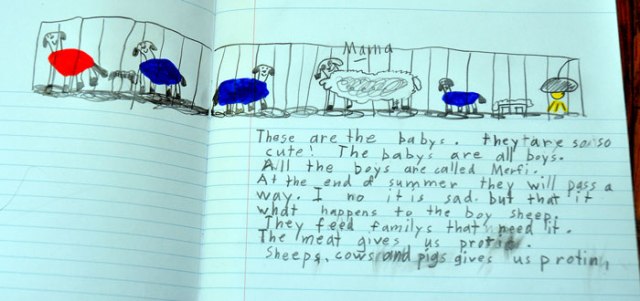 Mama
These are the babys. they are so so
cute! The babys are all boys.
All the boys are called Merfi.
At the end of summer they will pass a
way. I no it is sad. but that it
what happens to the boy sheep.
They feed familys that need it.
The meat gives us protin.
Sheeps, cows and pigs gives us protin,